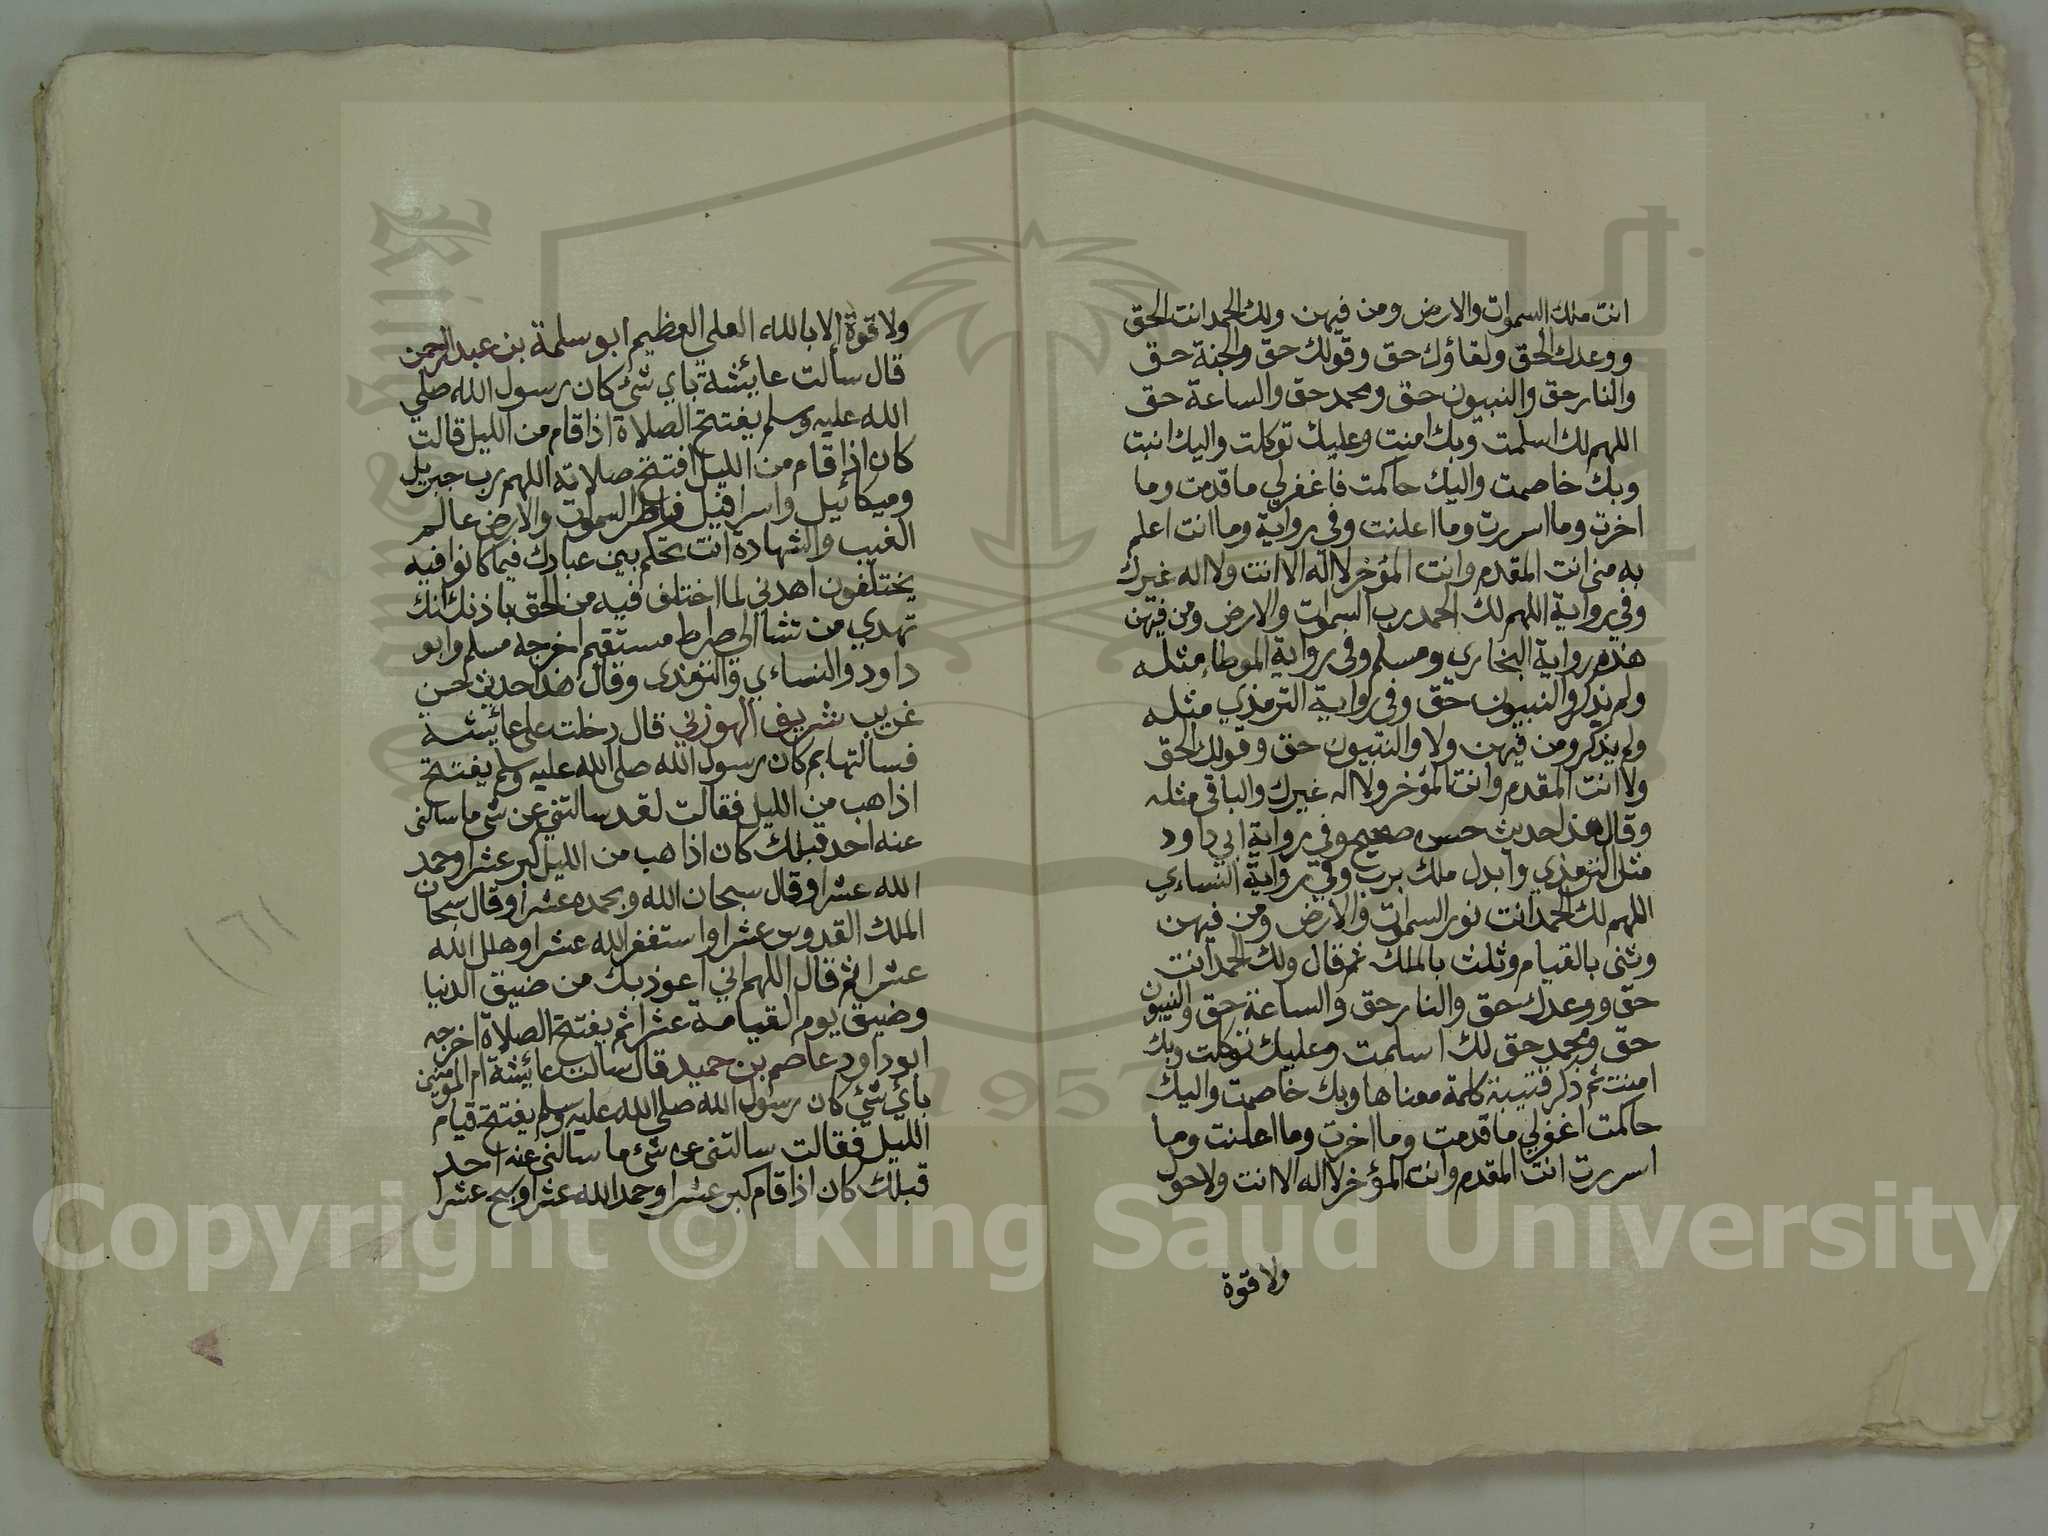 انت ملك السموات والارض ومن فيهن ولك الحمد انت الحق
ووعدك الحق ولقاؤك حق وقولك حق والجنة حق
والنار حق والنبيون حق ومحمد حق والساعة حق
اللهم لك اسلمت وبك امنت وعليك توكلت واليك انبت
وبك خاصمت واليك حاكمت فاغفر لي ما قدمت وما
اخرت وما اسررت وما اعلنت وفي رواية وما انت اعلم
به مني انت المقدم وانت المؤخر لا اله الا انت ولا اله غيرك
وفي رواية اللهم لك الحمد رب السموات والارض ومن فيهن
هذه رواية البخاري ومسلم وفي رواية الموطا مثله
ولم يذكر والنبيون حق وفي رواية الترمذي مثله
ولم يذكر ومن فيهن ولا والنبيون حق وقولك الحق
ولا انت المقدم وانت المؤخر ولا اله غيرك والباقي مثله
وقال هذا حديث حسن صحيح وفي رواية ابي داود
مثل الترمذي وابدل ملك برب وفي رواية النساءي
اللهم لك الحمد انت نور السموات والارض ومن فيهن
وثنى بالقيام وثلث بالملك ثم قال ولك الحمد انت
حق ووعدك حق والنار حق والساعة حق والنبيون
حق ومحمد حق لك اسلمت وعليك توكلت وبك
امنت ثم ذكر قتيبة كلمة معناها وبك خاصمت واليك
حاكمت اغفر لي ما قدمت وما اخرت وما اعلنت وما
اسررت انت المقدم وانت المؤخر لا اله الا انت ولا حول
ولا قوة
ولا قوة إلا بالله العلي العظيم ابو سلمة بن عبد الرحمن
قال سالت عائشة باي شئ كان رسول الله صلي
الله عليه وسلم يفتتح الصلاة اذا قام من الليل قالت
كان اذا قام من الليل افتتح صلاته اللهم رب جبريل
وميكائيل واسرافيل فاطر السموات والارض عالم
الغيب والشهادة انت تحكم بين عبادك فيما كانوا فيه
يختلفون اهدني لما اختلف فيه من الحق باذنك انك
تهدي من تشا الى صراط مستقيم اخرجه مسلم وابو
داود والنساءي والترمذي وقال هذا حديث حسن
غريب شريق الهوزني قال دخلت على عائشة
فسالتها بم كان رسول الله صلى الله عليه وسلم يفتتح
اذا هب من الليل فقالت لقد سالتني عن شي ما سالني
عنه احد قبلك كان اذا هب من الليل كبر عشرا وحمد
الله عشرا وقال سبحان الله وبحمده عشرا وقال سبحان
الملك القدوس عشرا واستغفر الله عشرا وهلل الله
عشرا ثم قال اللهم اني اعوذ بك من ضيق الدنيا
وضيق يوم القيامة عشرا ثم يفتتح الصلاة اخرجه
ابو داود عاصم بن حميد قال سالت عائشة ام المؤمنين
بأي شئ كان رسول الله صلى الله عليه وسلم يفتتح قيام
الليل فقالت سالتني عن شئ ما سالني عنه احد
قبلك كان اذا قام كبر عشرا وحمد الله عشرا وسبح عشرا
1957
Copyright © King Saud University